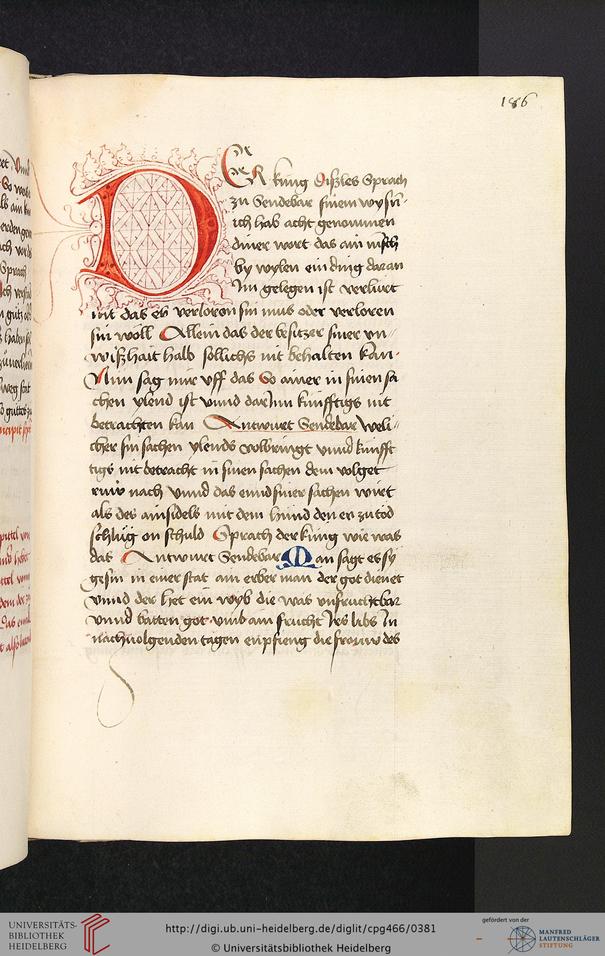 186
DER kung dißles Sprach
zu Sendebar sinem wysen
ich hab acht genommen
diner wort das ain mesch
by wylen ein ding daran
Im gelegen ist verlurt
mit das es verloren sin mus oder verloren
sin wöll Allein das der besitzer siner vn
wißhait halb sollichs nit behalten kan
Nun sag mir vff das So ainer in sinen sa
chen ylend ist vnnd dar Inn kunfftigs nit
betrachten kan Antwurt Sendebar weli
cher sin sachen ylends volbringt vnnd kunfft
tigs nit betracht in sinen sachen dem volget
ruw nach vnnd das ennd siner sachen wirt
als des ainsidels mit dem hund den er zu tod
schlug on schuld Sprach der kung wie was
das Antwurt Sendebar Man sagt es sy
gesin in einer stat ain erber man der got dienet
vnnd der het ein wyb die was vnfruchtbar
vnnd batten got vmb ain frucht Ires libs In
nachuolgenden tagen enpfieng die frouw des
UNIVERSITÄTS-
BIBLIOTHEK
HEIDELBERG
http://digi.ub.uni-heidelberg.de/diglit/cpg466/0381
© Universitätsbibliothek Heidelberg
gefördert von der
MANFRED
LAUTENSCHLÄGER
STIFTUNG